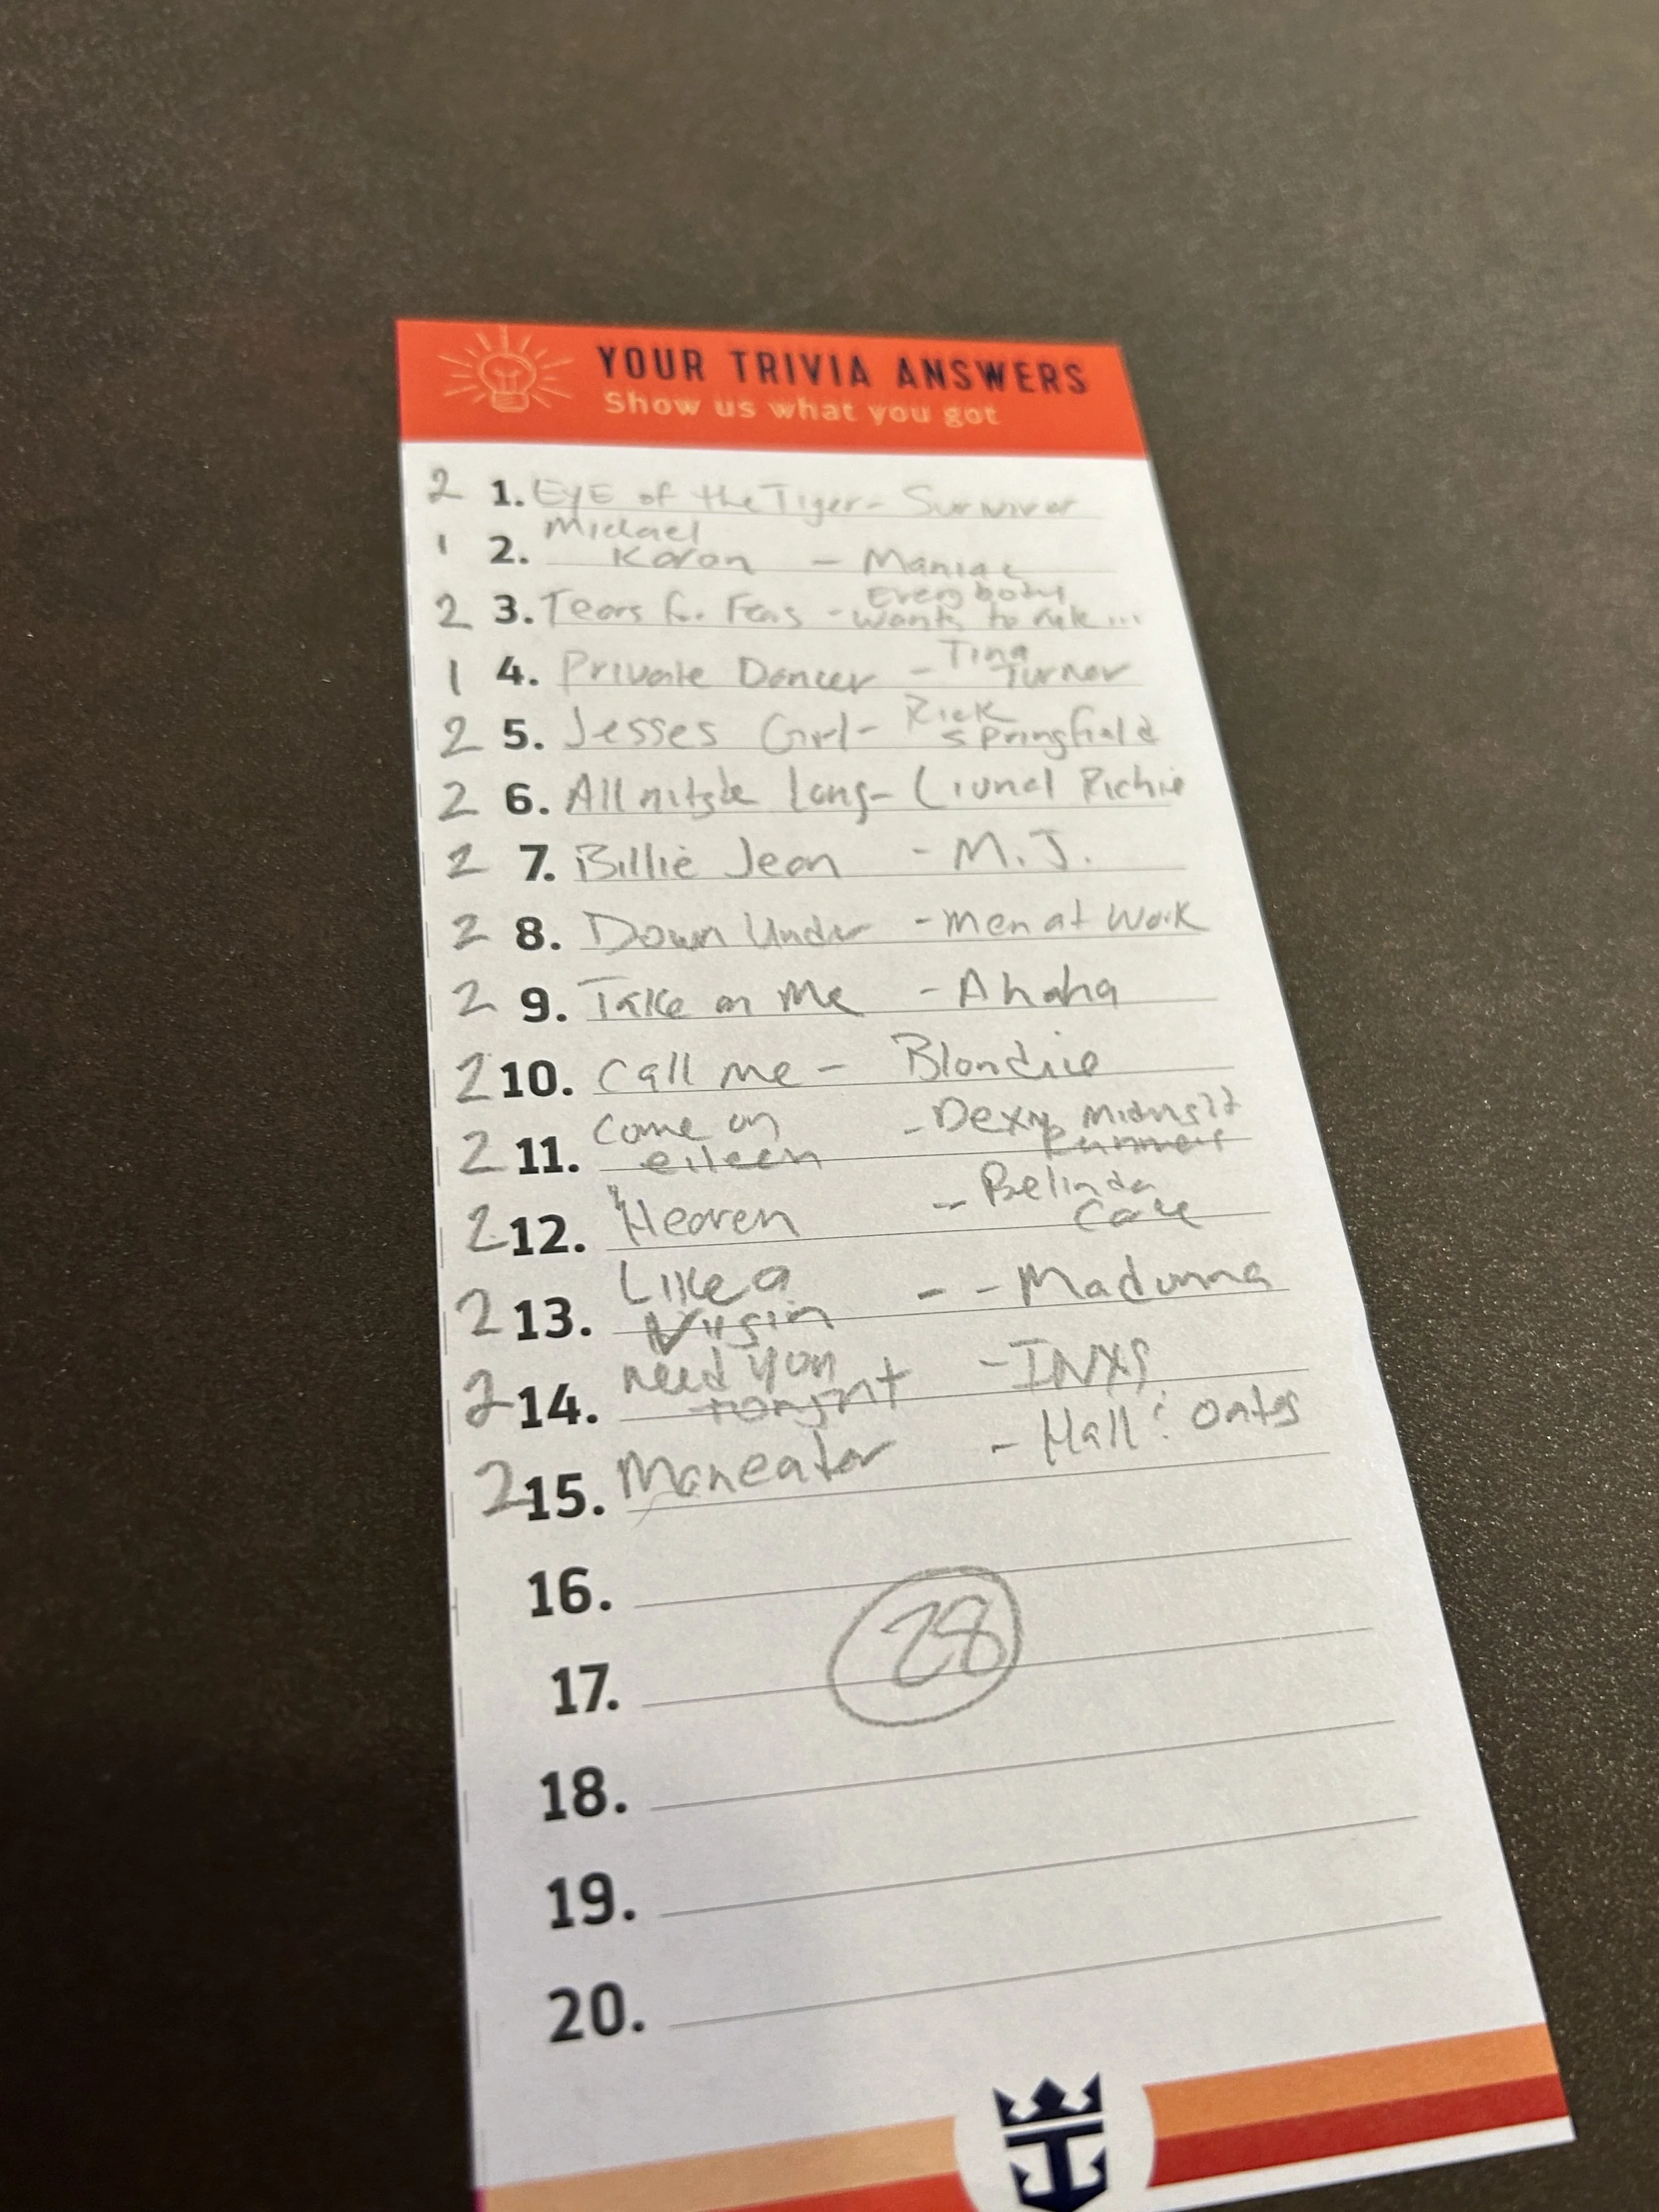 YOUR TRIVIA ANSWERS
Show us what you got
2 1. EyE of the Tiger - Survivor
1 2. Michael Karon - Maniac
2 3. Tears for Fears - Everybody wants to rule...
1 4. Private Dancer - Tina Turner
2 5. Jesses Girl - Rick Springfield
2 6. All Long - Lionel Richie
2 7. Billie Jean - M.J.
2 8. Down Under - Men at Work
2 9. Take on Me - Ahaha
2 10. Call me - Blondie
2 11. Come on eileen - Dexy Runners
2 12. Heaven - Belinda
2 13. Like a Virgin - - Madonna
2 14. need you - INXS
2 15. Maneater - Hall & Oates
16.
28
17.
18.
19.
20.